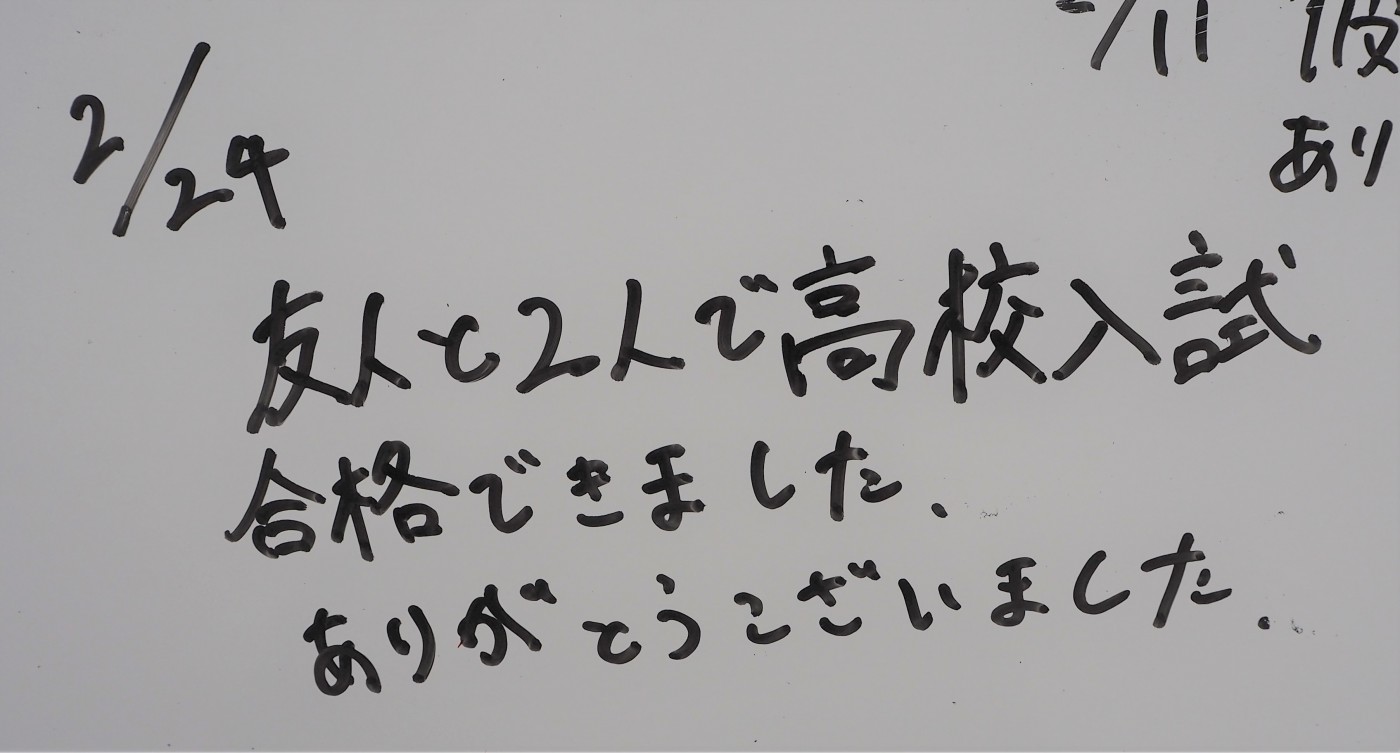 2/24
友人と2人で高校入試
合格できました.
ありがとうございました.
/11
あり